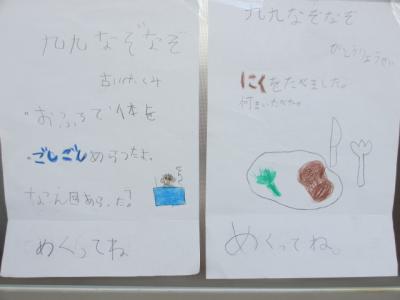 九九なぞなぞ
・おふろで体を
・ごしごしあらったよ。
なん回あらった?
めくってね
九九なぞなぞ
にくをたべました。
何まいたべた。
めくってね。